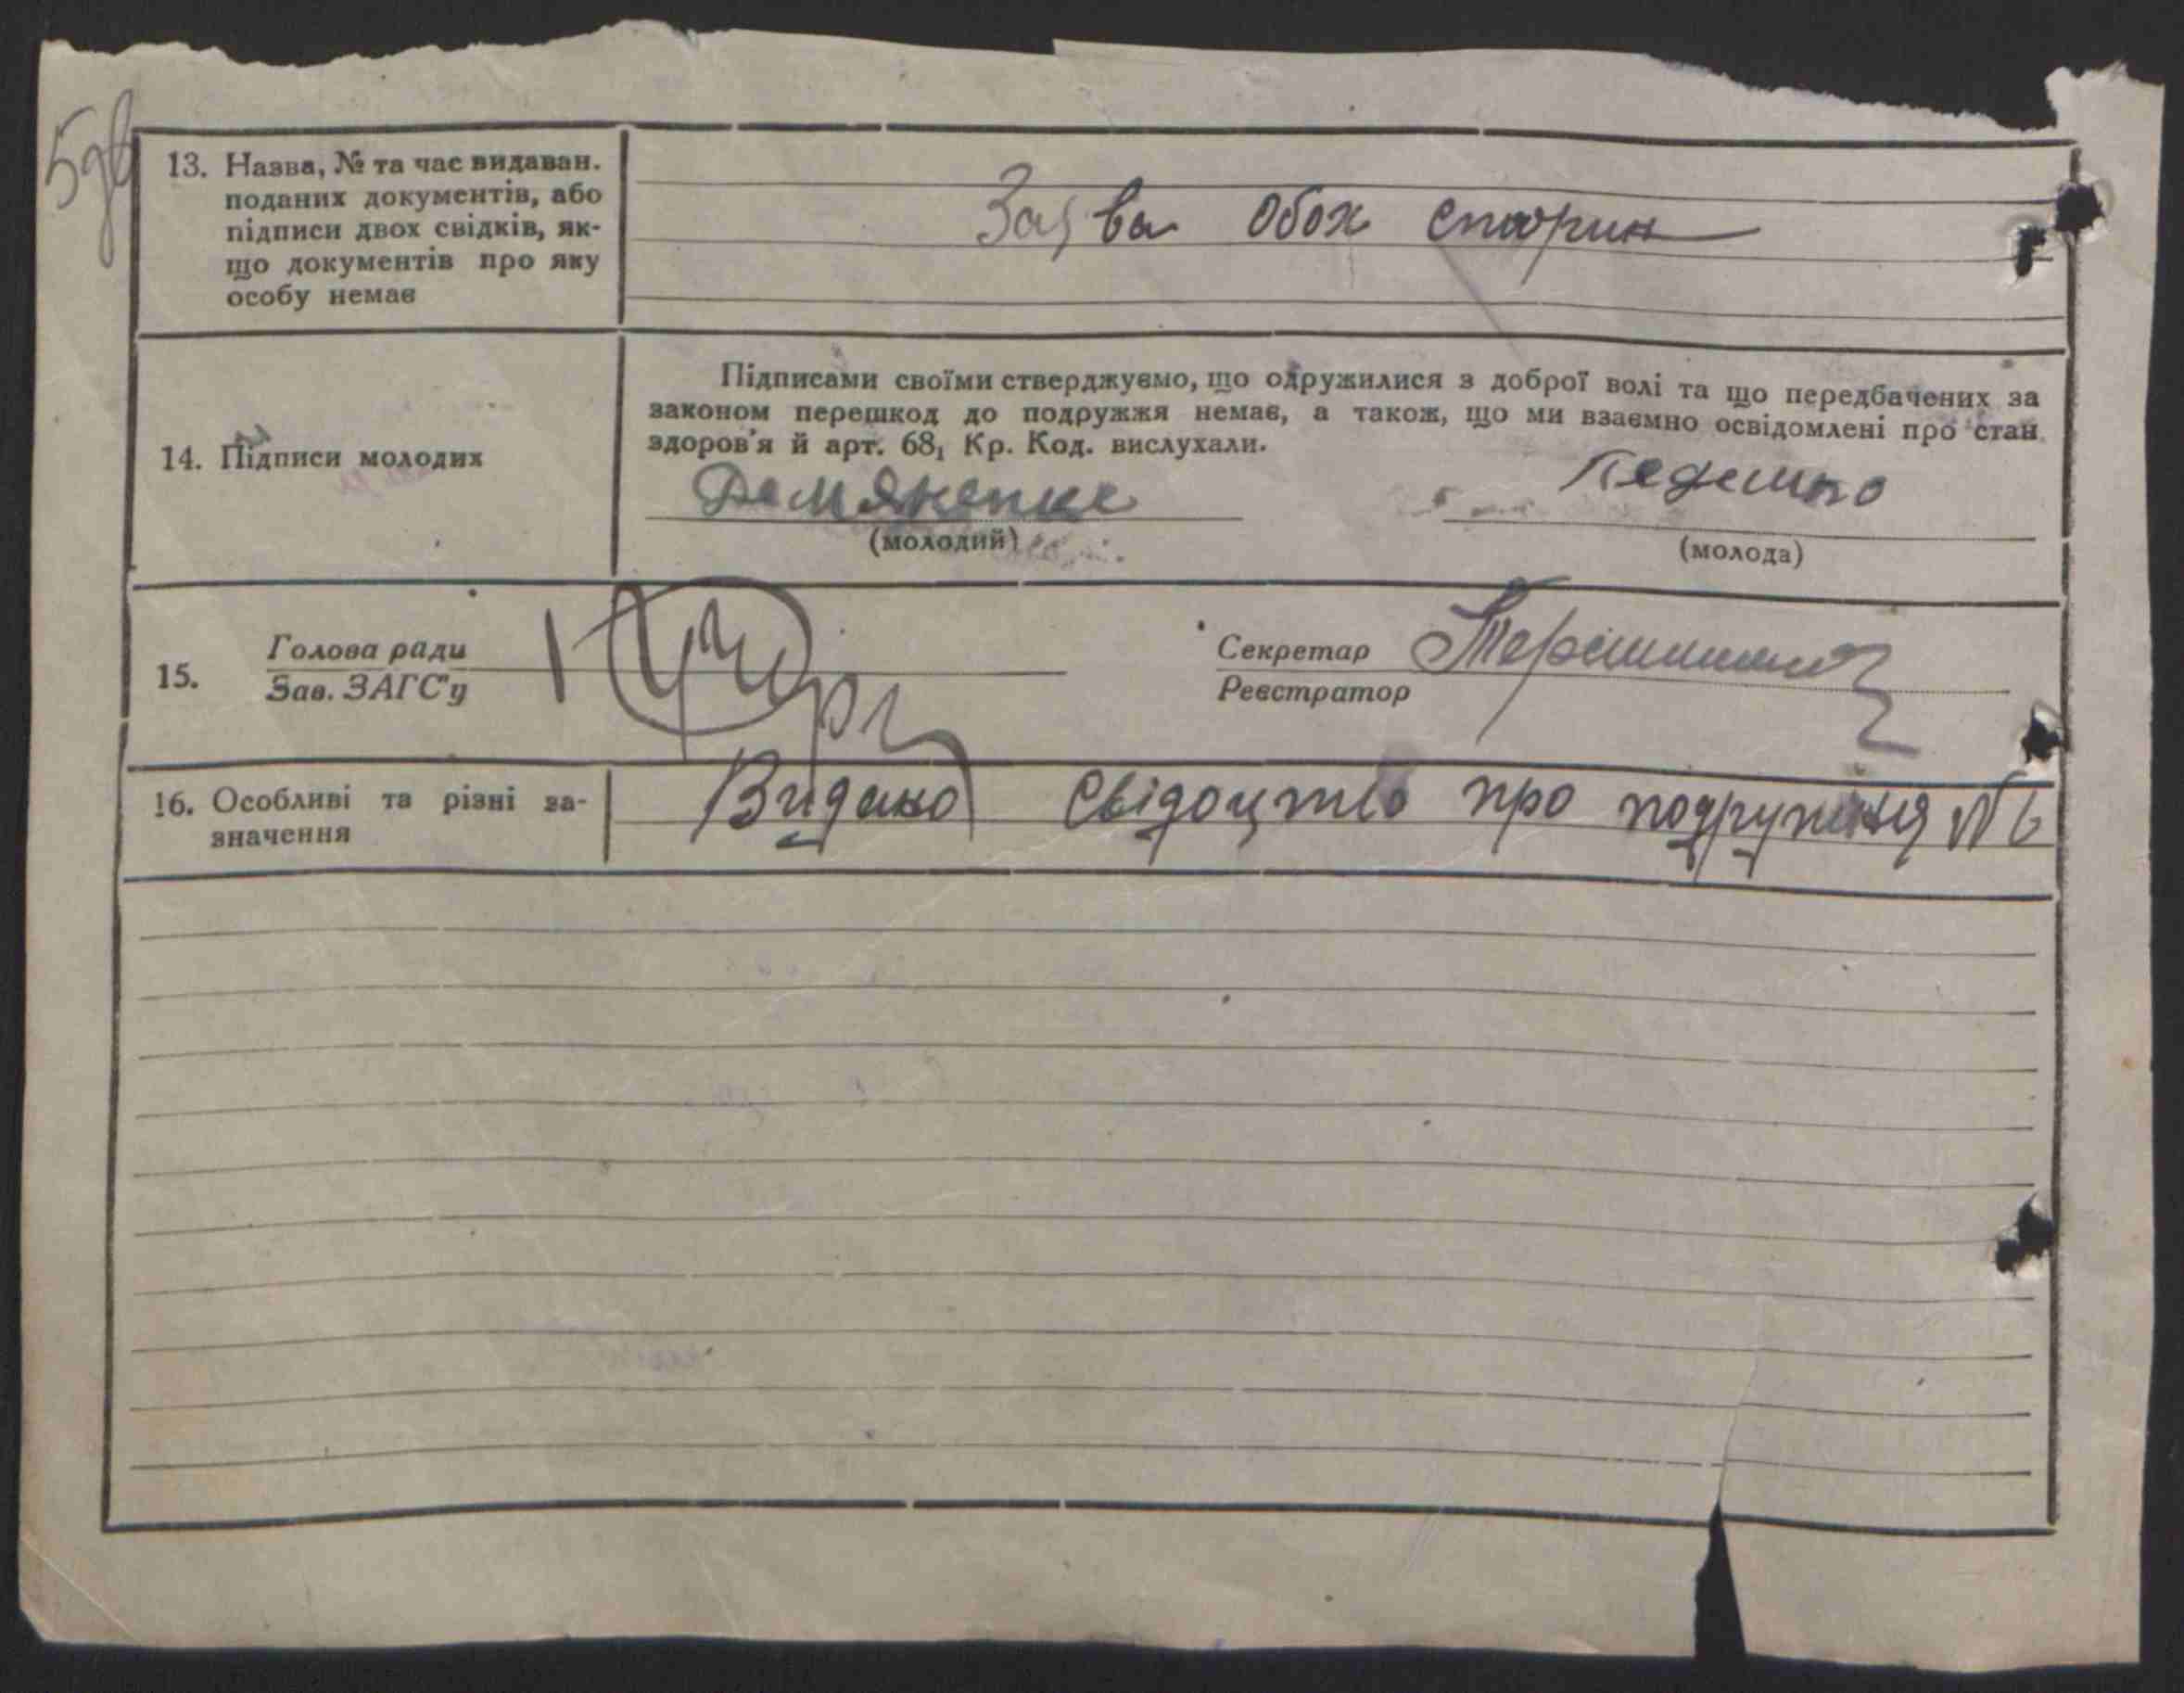 5зв
13. Назва, № та час видаван.
поданих документів, або
підписи двох свідків, як-
що документів про яку
особу немає
Заява обох сторин
14. Підписи молодих
Підписами своїми стверджуємо, що одружилися з доброї волі та що передбачених за
законом перешкод до подружжя немає, а також, що ми взаємно освідомлені про стан
здоров'я й арт. 68, Кр. Код. вислухали.
Демяненке
(молодий)
(молода)
15.
Голова ради
Зав. ЗАГС'у
Секретар
Реєстратор
16. Особливі та різні за-
значення
Видано свідоцтво про подружжя № 6